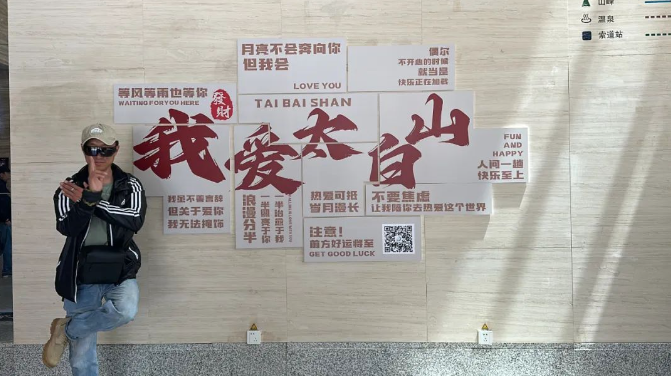 山峰
温泉
索道站
月亮不会奔向你
但我会
LOVE YOU
偶尔
不开心的时候
就当是
快乐正在加载
等风等雨也等你
WAITING FOR YOU HERE
發財
TAI BAI SHAN
我爱太白山
FUN
AND
HAPPY
人间一趟
快乐至上
我虽不善言辞
但关于爱你
我无法掩饰
浪漫分半
热爱可抵
岁月漫长
不要焦虑
让我陪你去热爱这个世界
注意！
前方好运得至
GET GOOD LUCK